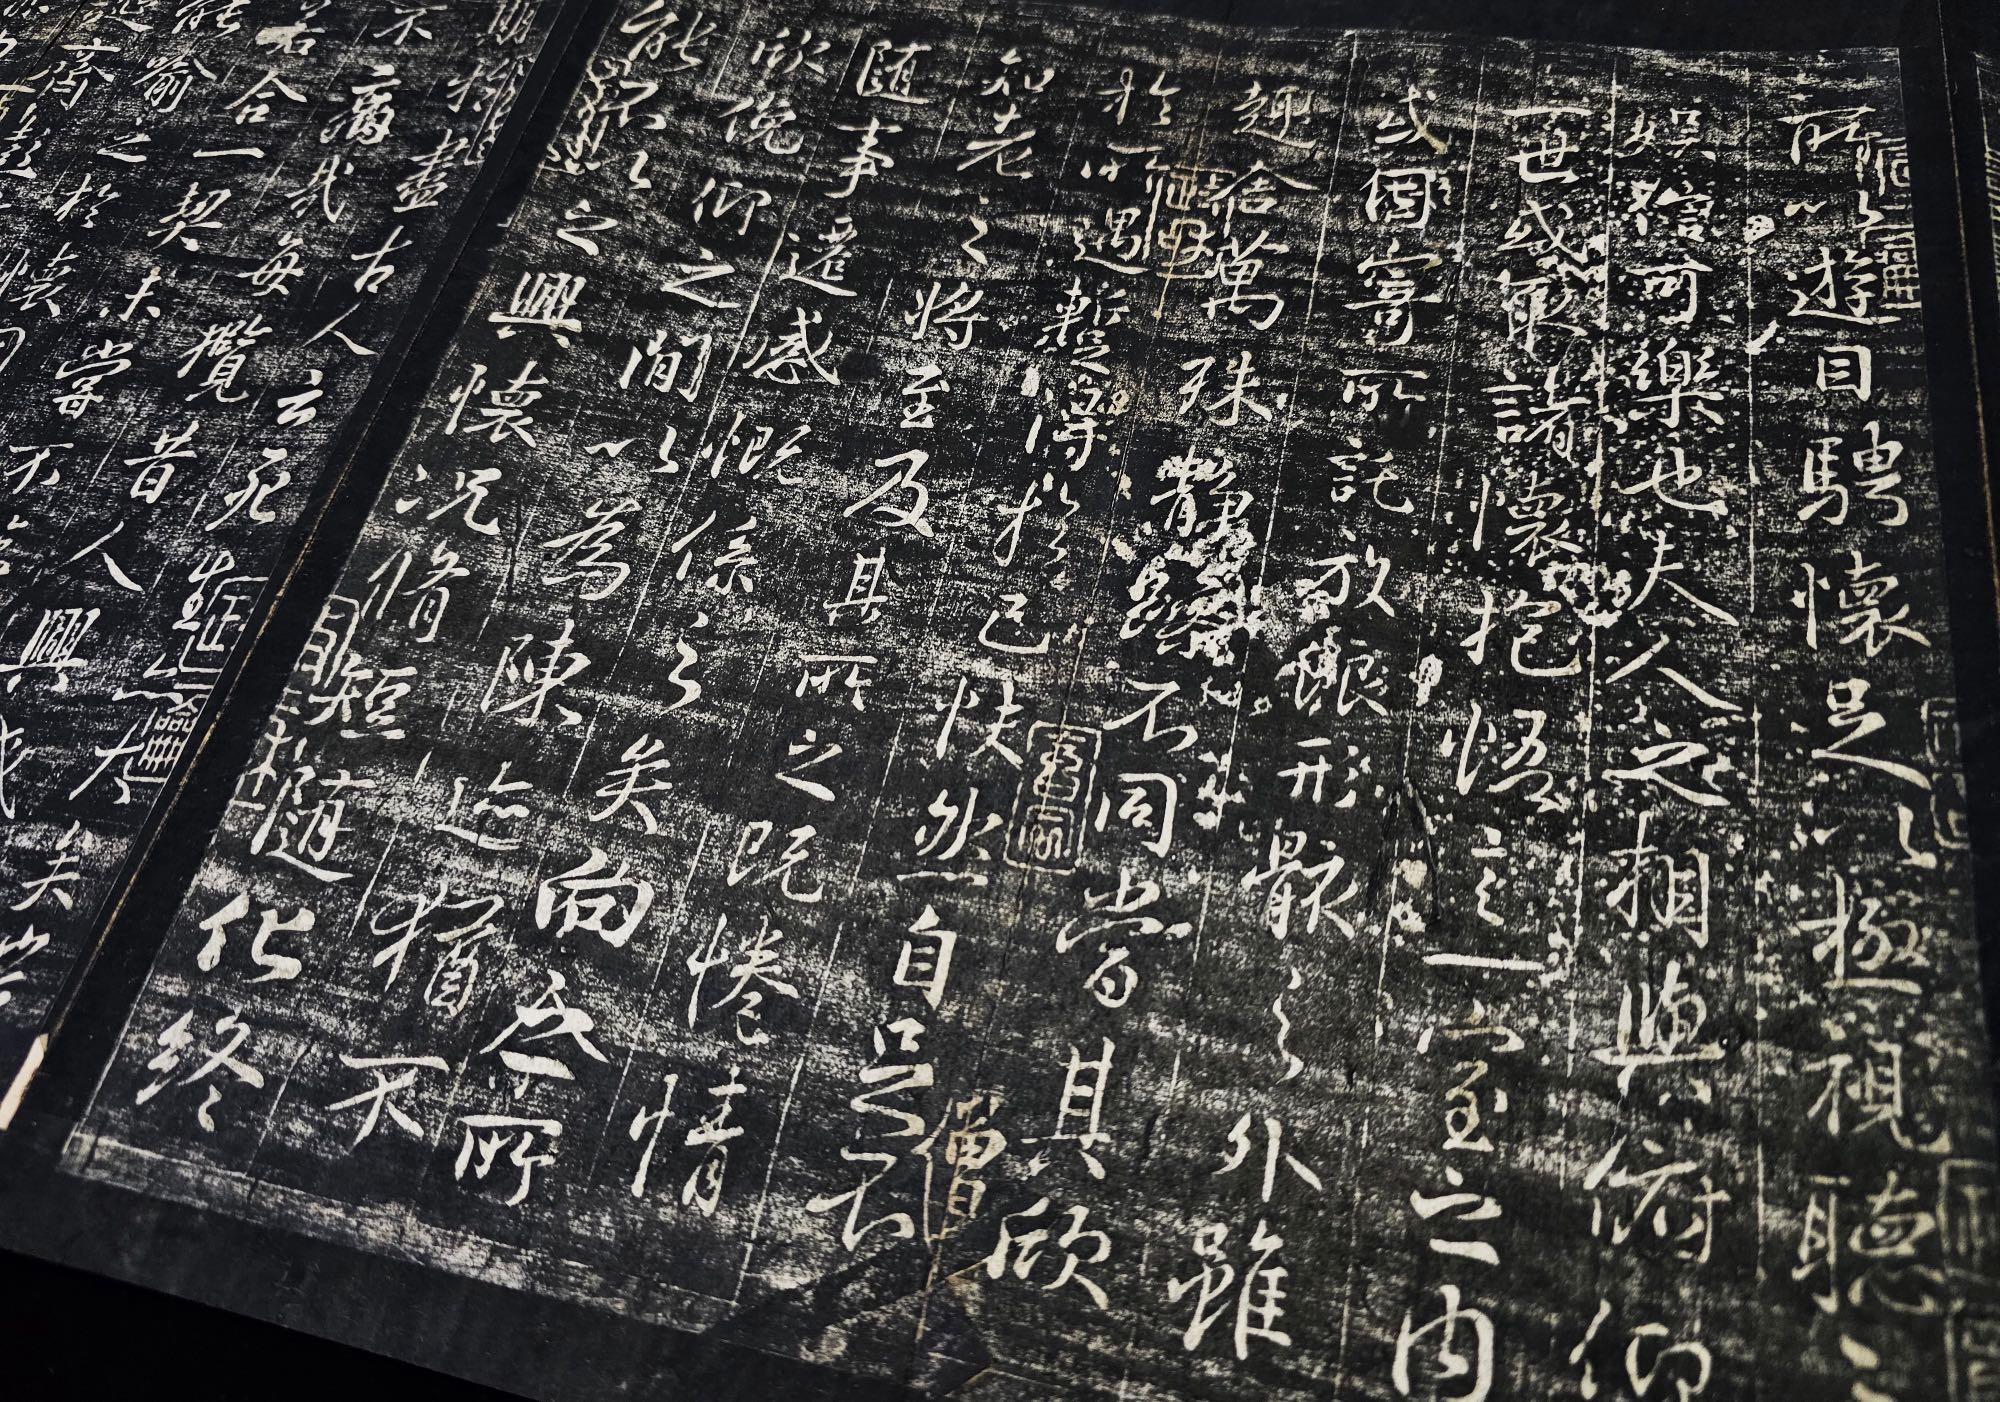 所以遊目騁懷足以極視聽之
娛信可樂也夫人之相與俯仰
一世或取諸懷抱悟言一室之內
或因寄所託放浪形骸之外雖
趣舍萬殊靜躁不同當其欣
於所遇暫得於己怏然自足不
知老之將至及其所之既惓情
隨事遷感慨係之矣向之所
欣俛仰之閒以為陳迹猶不
能不以之興懷況脩短隨化終
期於盡古人云死生亦大
不痛哉每攬昔人興
若合一契未嘗不
能喻之於懷固